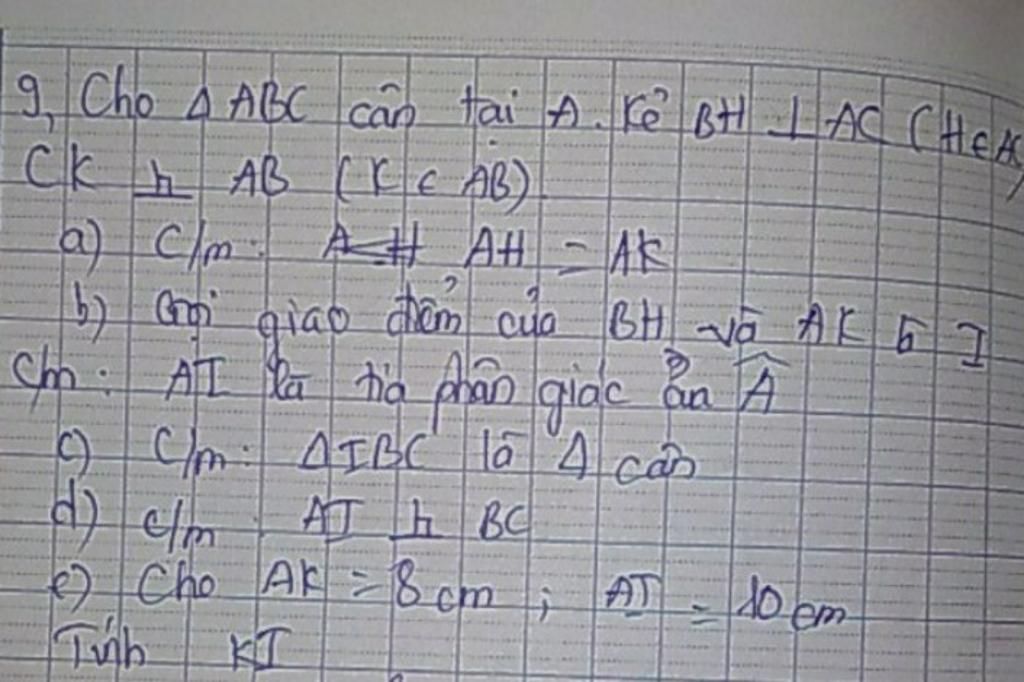 9, Cho Δ ABC cân tại A. Kẻ BH ⊥ AC (H ∈ AC)
CK ⊥ AB (K ∈ AB)
a) C/m: AH = AK
b) Gọi giao điểm của BH và AK là I
C/m: AI là tia phân giác của Â
c) C/m: ΔIBC là Δ cân
d) c/m AI ⊥ BC
e) Cho AK = 8 cm ; AI = 10 cm
Tính KI